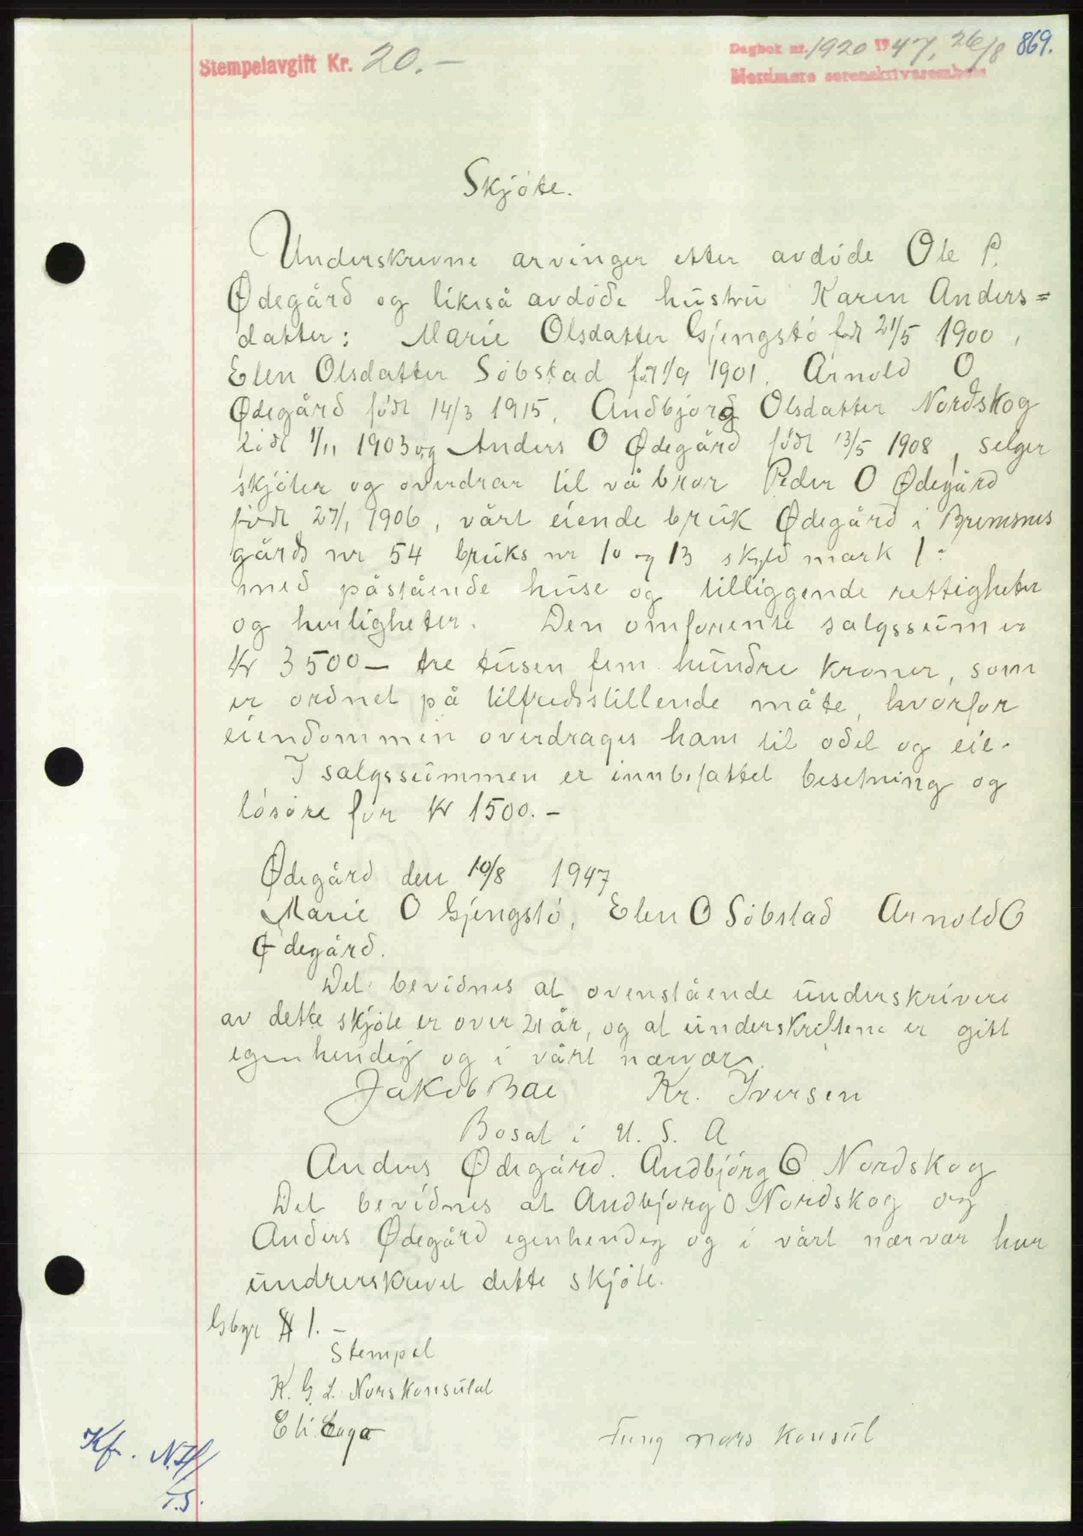 Stempelavgift Kr. 20.-
Dagbok nr. 1920 1947, 26/8 869.
Nordmøre sorenskriverembete
Skjöte.
Underskrevne arvinger etter avdöde Ole P.
Ödegård og likeså avdöde hustru Karen Anders=
datter: Marie Olsdatter Gjengstö født 21/5 1900,
Elen Olsdatter Söbstad født 1/9 1901. Arnold O
Ödegård födt 14/3 1915. Andbjørg Olsdatter Nordskog
födt 1/11 1903 og Anders O Ødegård födt 13/5 1908, selger
skjöter og overdrar til vå bror Peder O Ødegård
födt 27/1 1906, vårt eiende bruk Ödegård i Bremsnes
gårds nr 54 bruks nr 10 og 13 skyld mark 1.-
med påstående huse og tilliggende rettigheter
og herligheter. Den omforente salgssum er
Kr 3500- tre tusen fem hundre kroner, som
er ordnet på tilfredsstillende måte, hvorfor
eiendommen overdrages ham til odel og eie.
I salgssummen er innbefattet besetning og
lösöre for kr 1500.-
Ödegård den 10/8 1947
Marie O Gjengstö, Elen O Söbstad Arnold O
Ödegård.
Det bevidnes at ovenstående underskrivere
av dette skjöte er over 21 år, og at underskriftene er gitt
egenhendig og i vårt nærvær.
Jakob Bae Kr. Iversen
Bosat i U.S.A
Anders Ödegård. Andbjörg O Nordskog
Det bevidnes at Andbjørg O Nordskog og
Anders Ödegård egenhendig og i vårt nærvær har
undrerskrevet dette skjöte.
Gbyr $ 1.-
Stempel
K. G. L. Norskonsulat
Eli
Fung nors konsul
Kfr. N.H/
T.S.